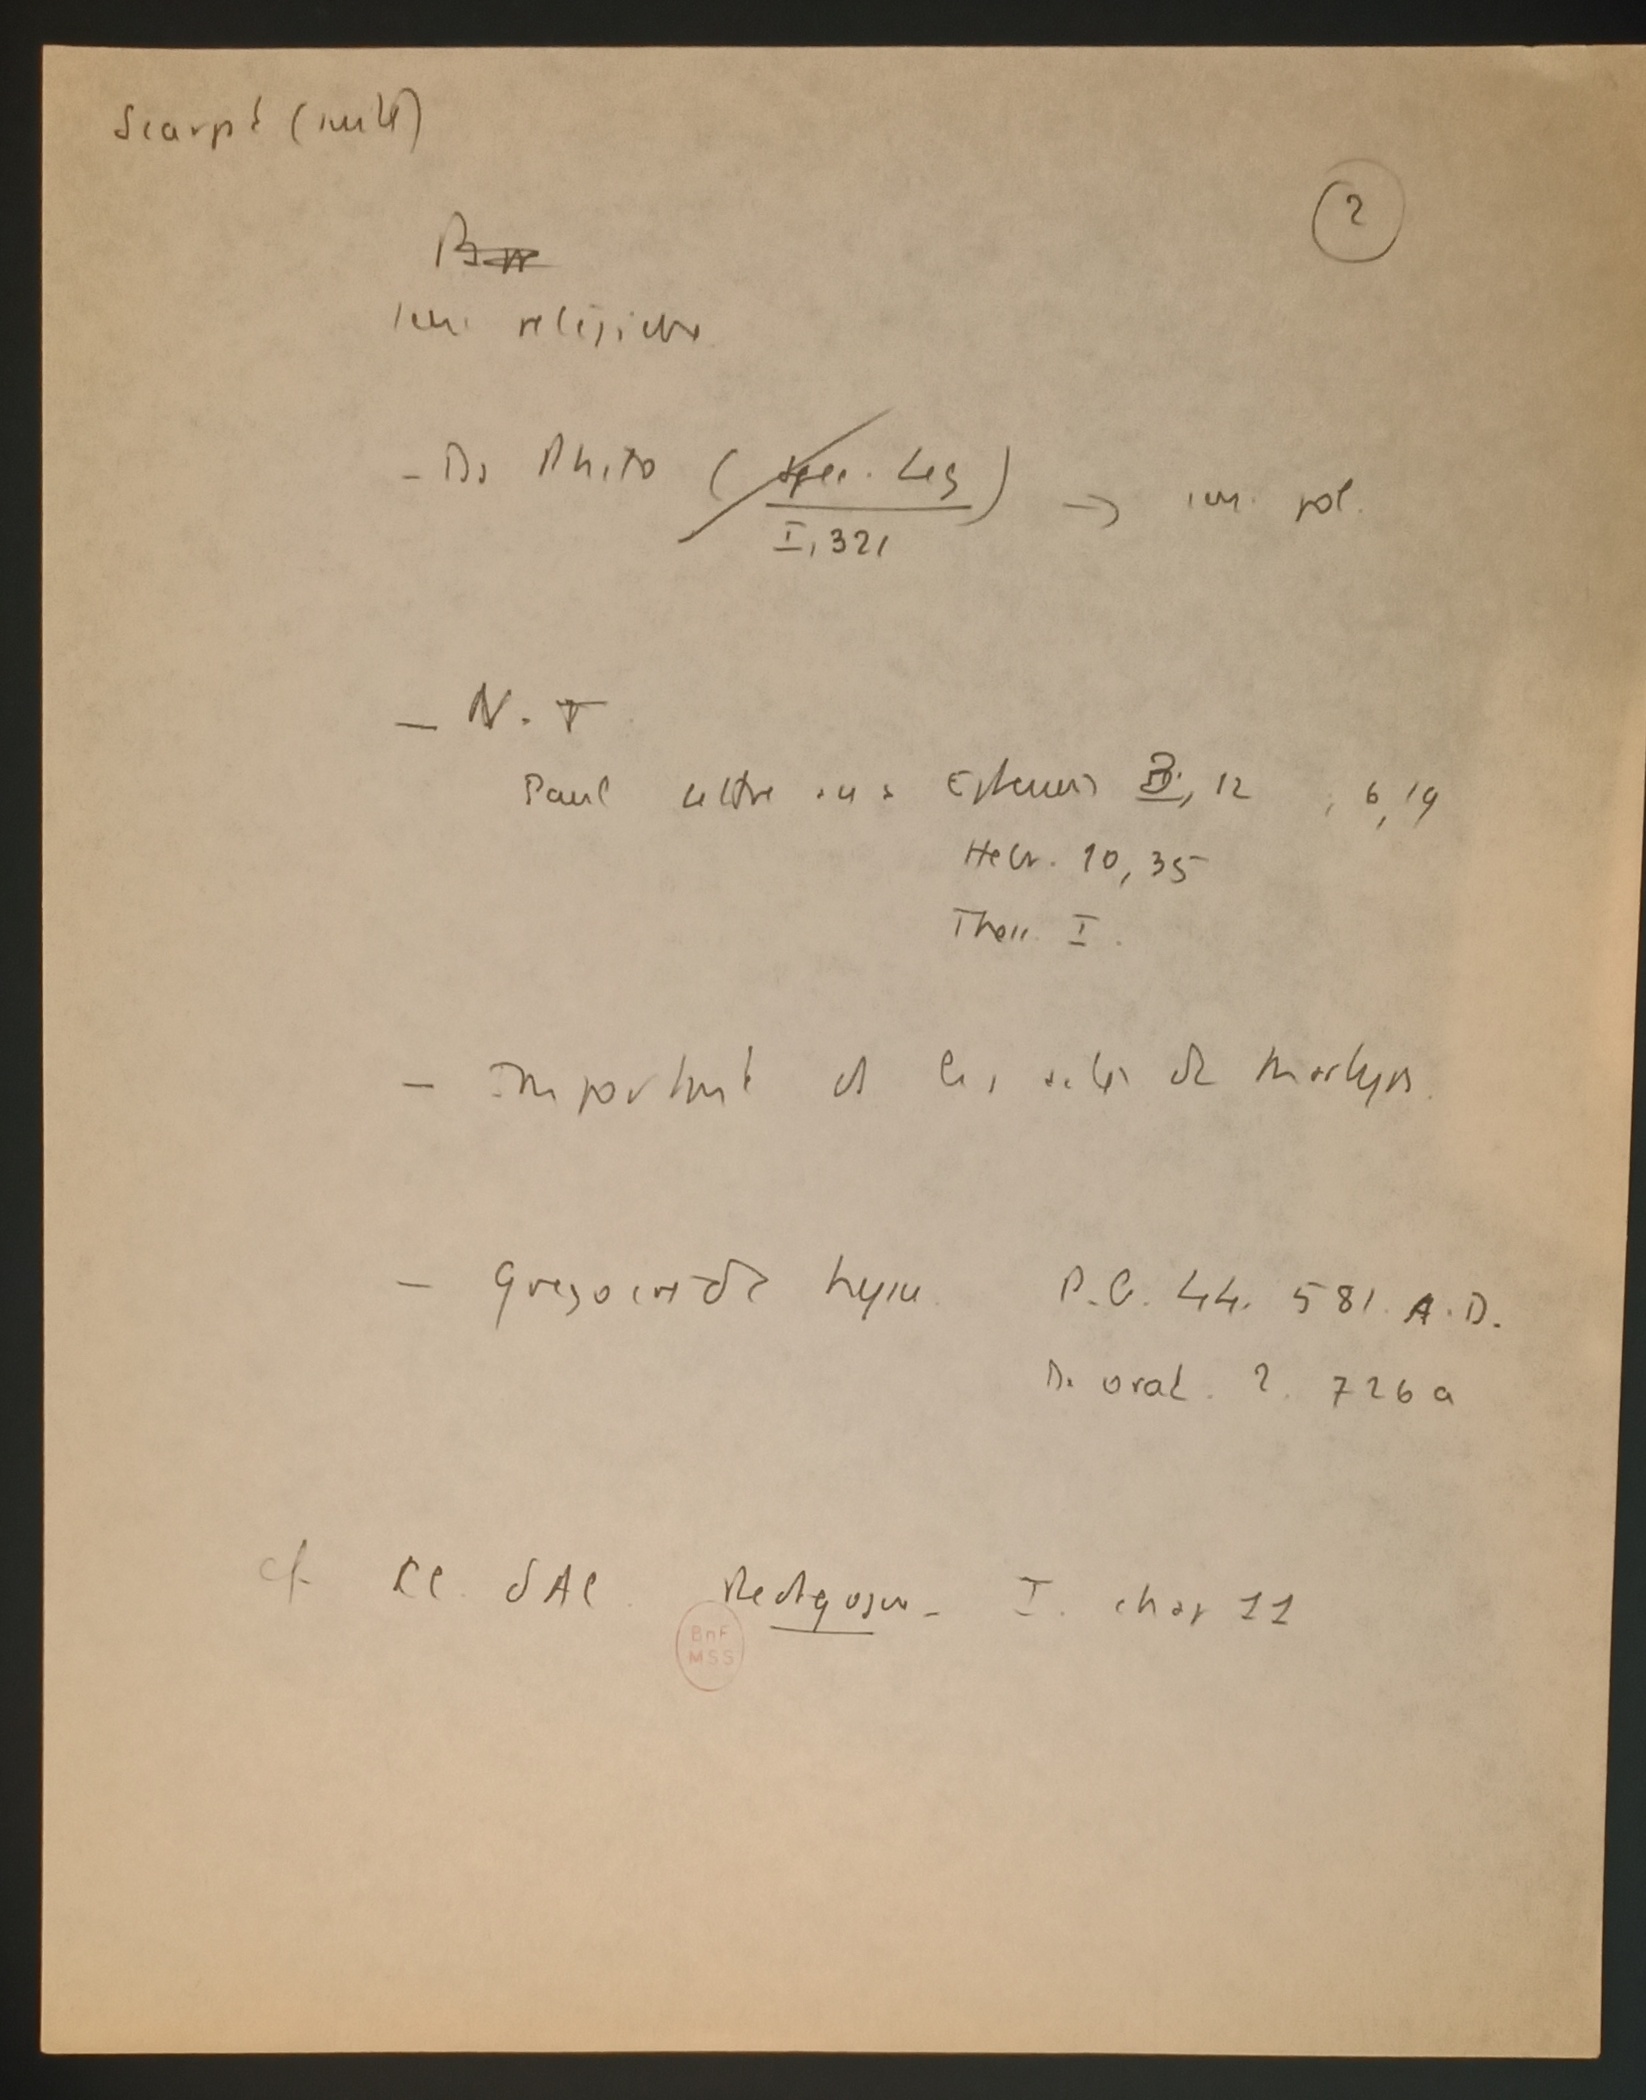 Scarpat (suite)
2
sens religieux
- Ds Philo (Spec. Leg → sens pol.
I, 321
- N.T
Paul lettre aux Ephesiens 3, 12 , 6, 19
Hebr. 10, 35
Thess. I.
- Important ds les actes de Martyrs.
- Gregoire de Nysse. P.G. 44. 581. A.D.
De orat. 2. 726 a
cf I. chap 11
BnF
MSS